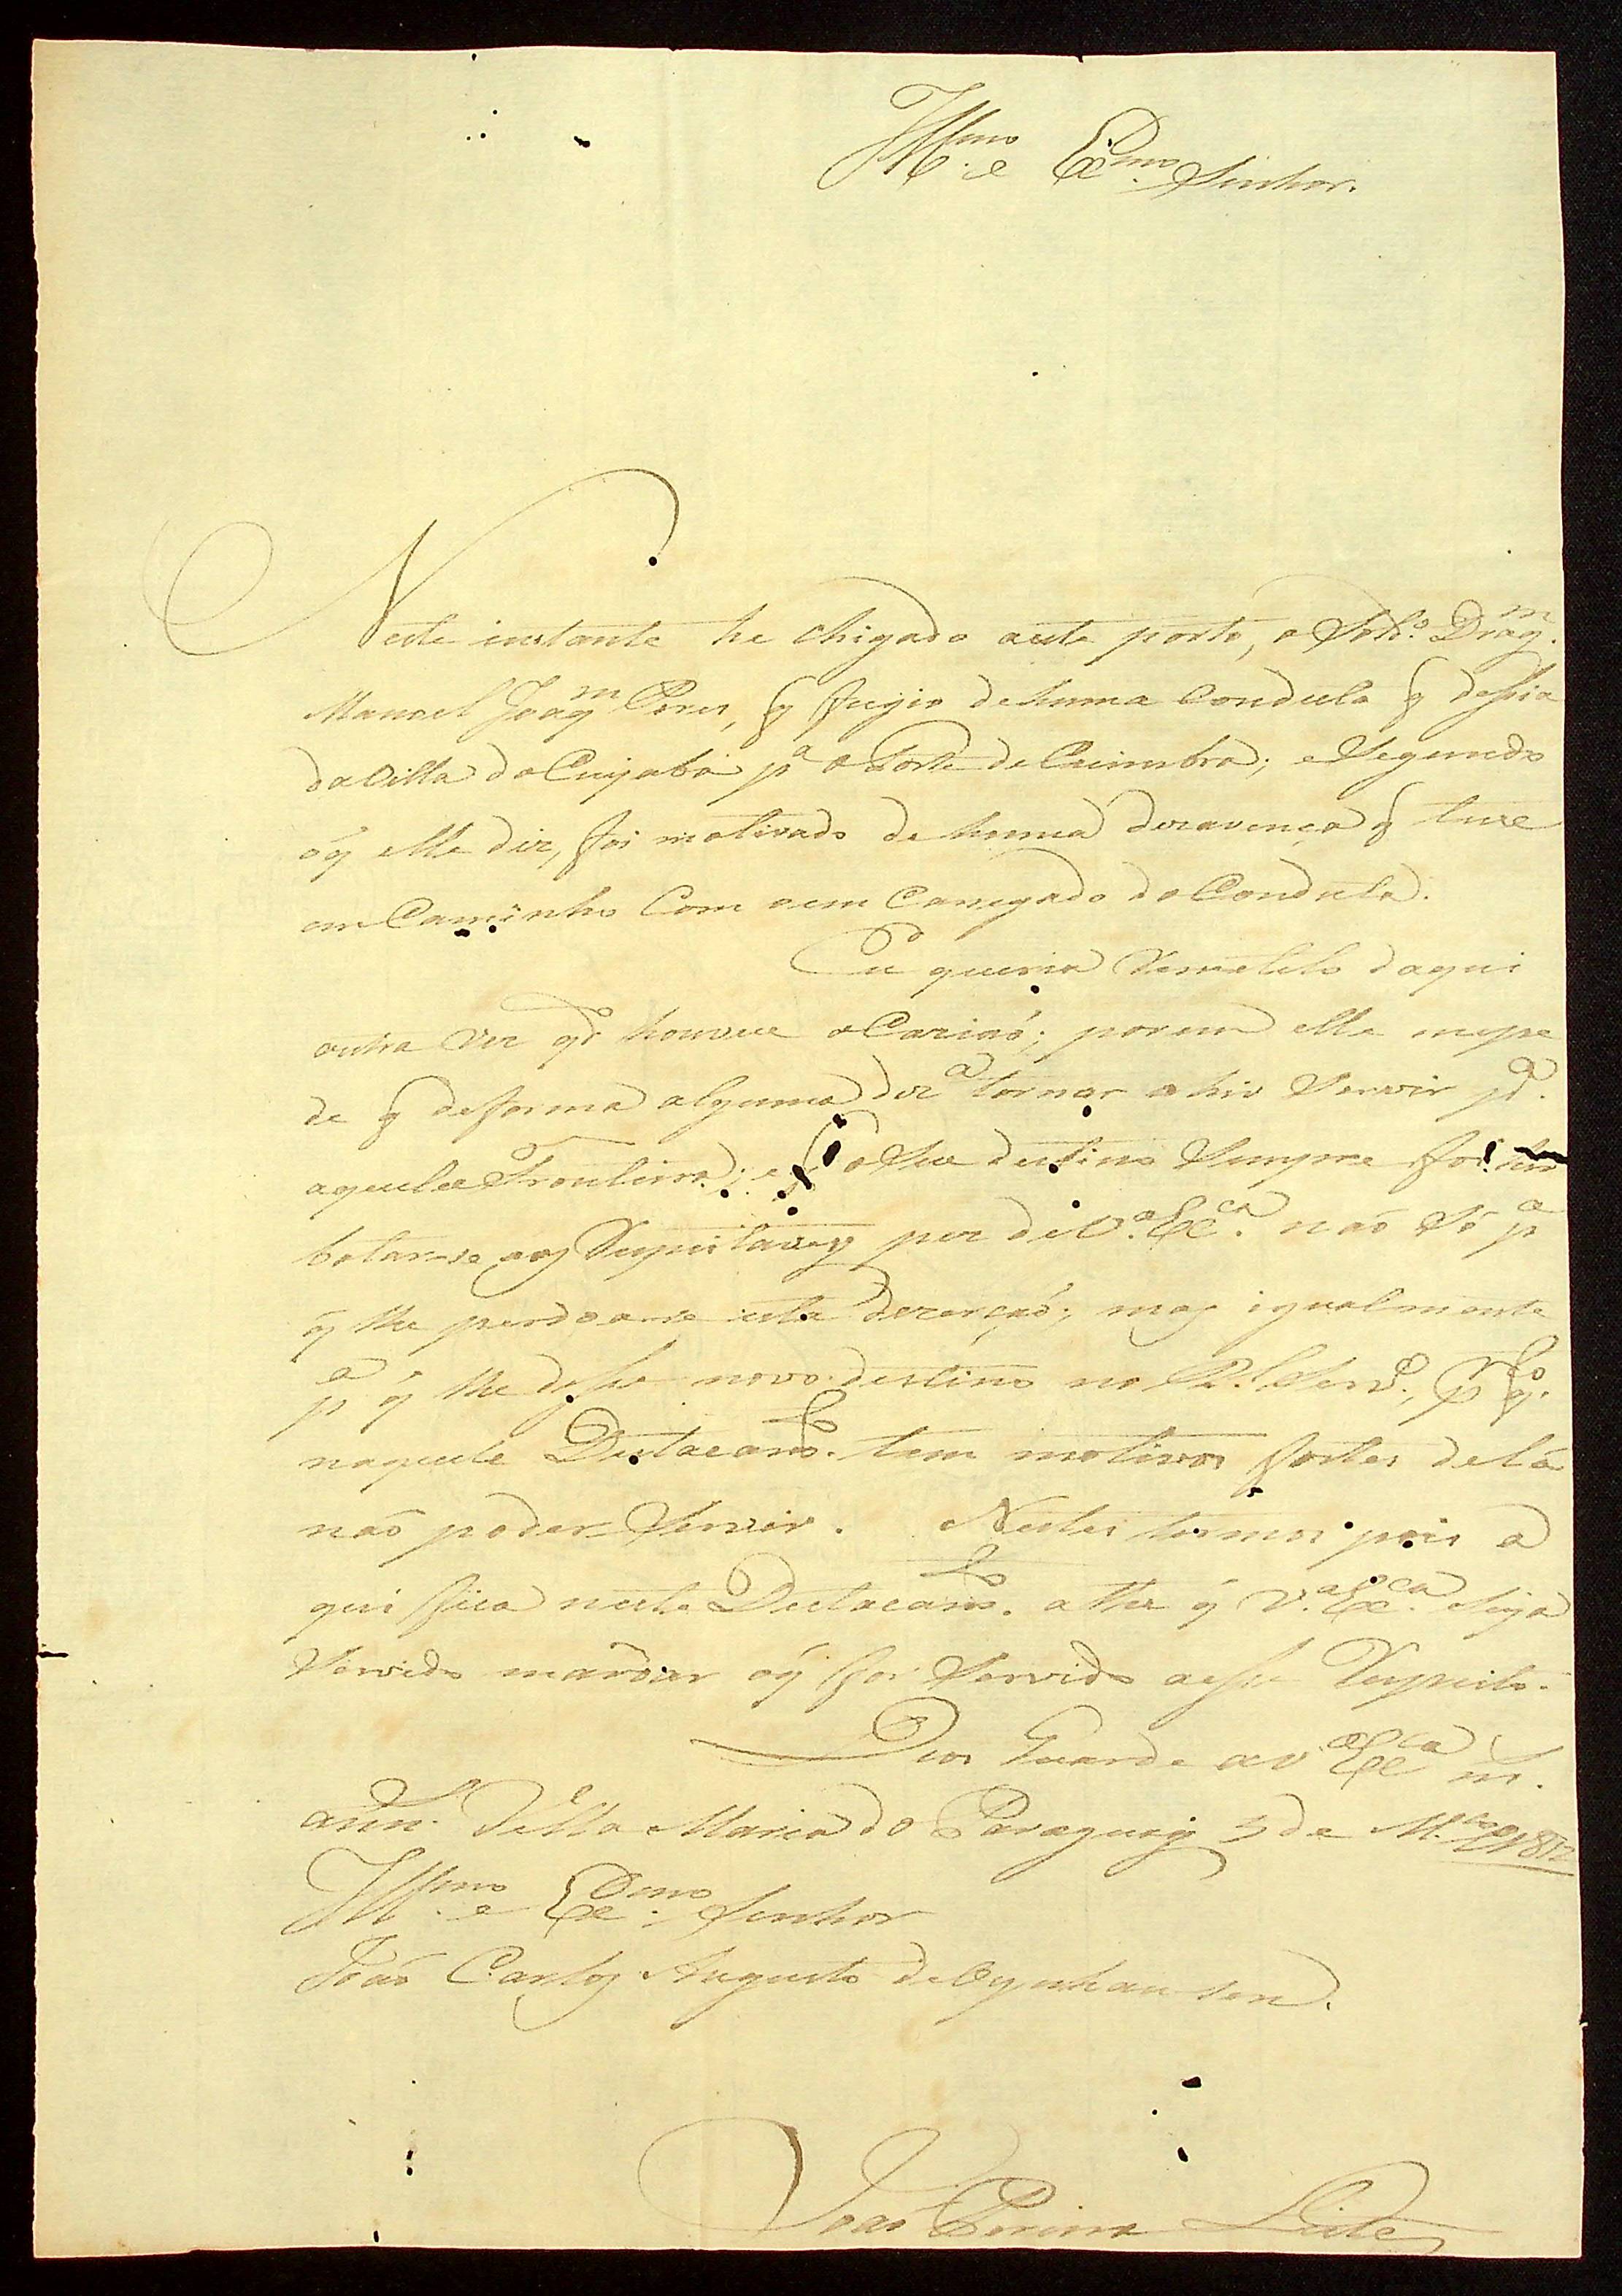 Ill.mo e Ex.mo Senhor.
Neste instante he chegado aeste porto, o Sold.o Drag.m
Manoel Joaq.m Pires, q̃ fugio dehuma Conduta q̃ descia
daVilla doCuyabá p.a oForte deCoimbra; eSegundo
óq̃ elle diz, foi motivado de huma dezavença q̃ teve
emCaminho Com oemCarregado daConduta.
Eu queria Remetelo daqui
outra vez q.do houvece oCaziaõ; porem elle mepe
de q̃ deforma alguma dez.a tornar ahir Servir p.a
aquella Fronteira; e q̃ oSeu destino Sempre foi hir
botar-se aos Respeitaveis pez deV.a Ex.ca não Só p.a
q̃ lhe perdoa-se esta dezerçaõ; mas igualmente
p.a q̃ lhe desse novo destino no R.l Serv.o, p.r q.to
naquele Destacam.to tem motivos fortes delá
naõ poder Servir. Nestes termos pois a
qui fica neste Destacam.to athe q̃ V.a Ex.ca Seja
Servido mandar oq̃ for Servido aesse Respeito.
Deos Guarde aV Ex.ca m.
ann. Villa Maria do Paraguay 5 de M.ço 1812
Ill.mo e Ex.mo Senhor
Joaõ Carlos Augusto deOynhausen.
Joaõ Pereira Leite